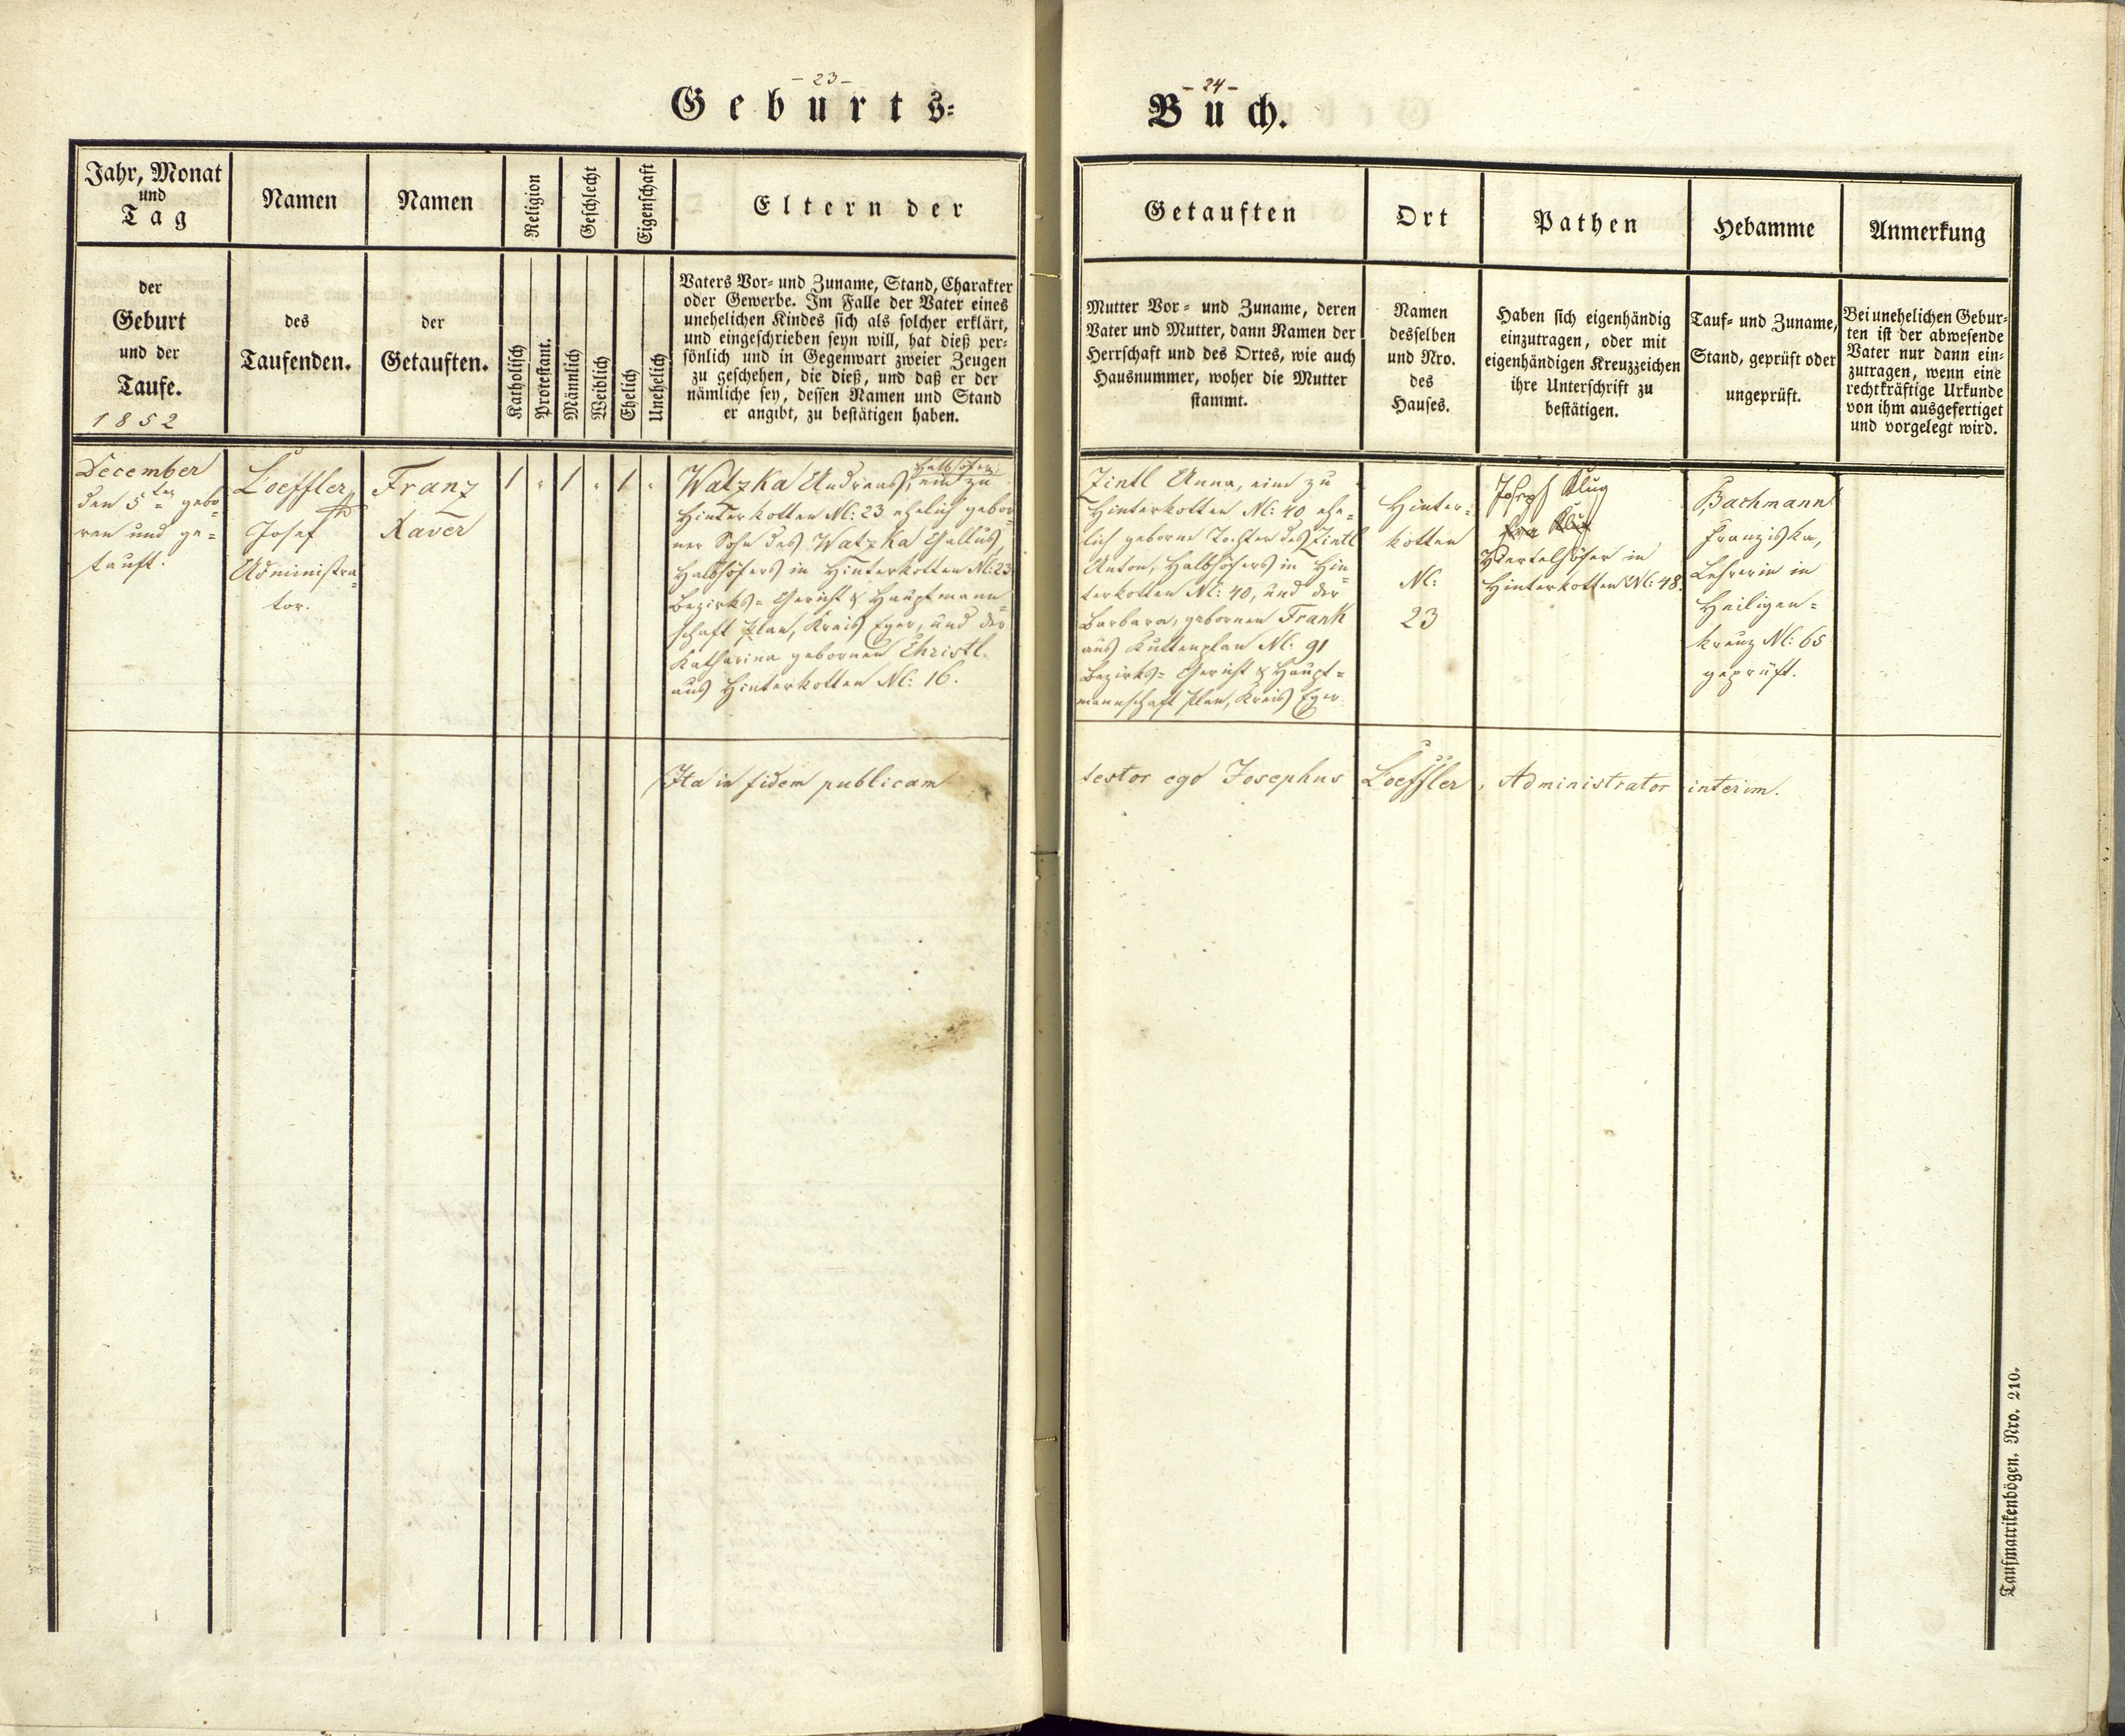 - 23 -
Geburts-
Jahr, Monat
und
Tag
Namen
Namen
Religion
Geschlecht
Eigenschaft
Eltern der
der
Geburt
und der
Taufe.
1852
des
Taufenden.
der
Getauften.
Katholisch
Protestant.
Männlich
Weiblich
Ehelich
Unehelich
Vaters Vor- und Zuname, Stand, Charakter
oder Gewerbe. Im Falle der Vater eines
unehelichen Kindes sich als solcher erklärt,
und eingeschrieben seyn will, hat dieß per-
sönlich und in Gegenwart zweier Zeugen
zu geschehen, die dieß, und daß er der
nämliche sey, dessen Namen und Stand
er angibt, zu bestätigen haben.
December
den 5ten gebo-
ren und ge-
tauft.
Loeffler
Josef
Administra-
tor.
Franz
Xaver
1 " 1 " 1 "
Halbhöfer
Watzka Andreas, ein zu
Hinterkotten N: 23 ehelich gebor-
ner Sohn des Watzka Gallus,
Halbhöfers in Hinterkotten N: 23
Bezirks-Gericht & Hauptmann-
schaft Plan, Kreis Eger, und der
Katharina gebornen Christl
aus Hinterkotten N: 16.
Ita in fidem publicam
- 24 -
Buch.
Getauften
Ort
Pathen
Hebamme
Anmerkung
Mutter Vor- und Zuname, deren
Vater und Mutter, dann Namen der
Herrschaft und des Ortes, wie auch
Hausnummer, woher die Mutter
stammt.
Namen
desselben
und Nro.
des
Hauses.
Haben sich eigenhändig
einzutragen, oder mit
eigenhändigen Kreuzzeichen
ihre Unterschrift zu
bestätigen.
Tauf- und Zuname,
Stand, geprüft oder
ungeprüft.
Bei unehelichen Gebur-
ten ist der abwesende
Vater nur dann ein-
zutragen, wenn eine
rechtkräftige Urkunde
von ihm ausgefertiget
und vorgelegt wird.
Zintl Anna, eine zu
Hinterkotten N: 40 ehe-
lich geborne Tochter des Zintl
Anton, Halbhöfers in Hin-
terkotten N: 40, und der
Barbara, gebornen Frank
aus Kuttenplan N: 91
Bezirks-Gericht & Haupt-
mannschaft Plan, Kreis Eger.
Hinter-
kotten
N:
23
Joseph Klug
Eva Klug
Viertelhöfer in
Hinterkotten N: 48.
Bachmann
Franziska,
Lehrerin in
Heiligen-
kreuz N: 65
geprüft.
testor ego Josephus Loeffler, Administrator interim.
Taufmatrikenbögen. Nro. 210.